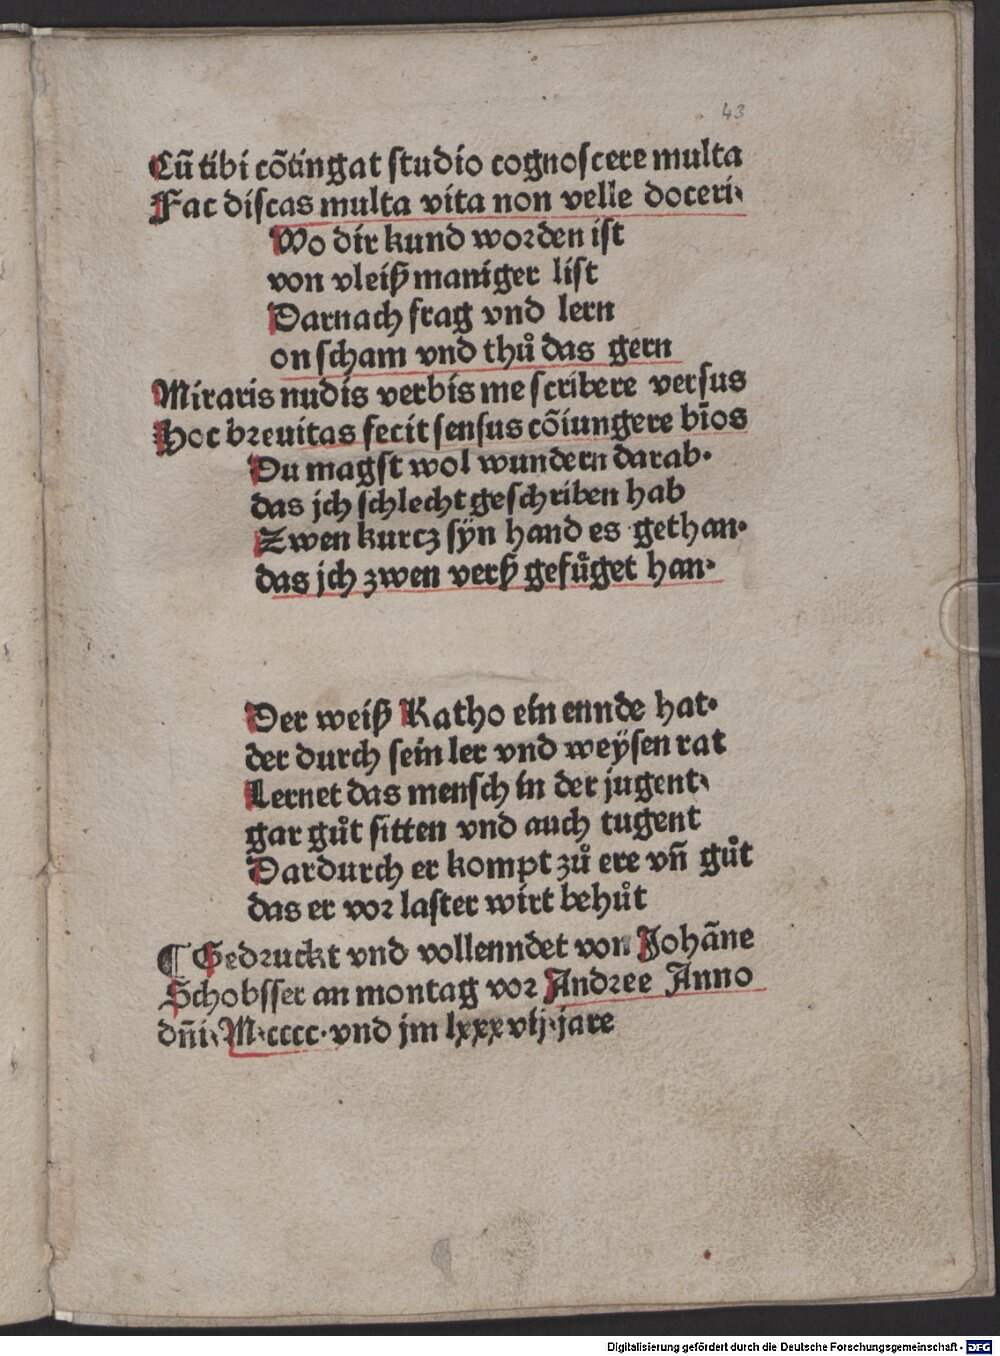 43
Cũ tibi cõtingat studio cognoscere multa
Fac discas multa vita non velle doceri·
Wo dir kund worden ist
von vleiß maniger list
Darnach frag vnd lern
on scham vnd thů das gern
Miraris nudis verbis me scribere versus
Hoc breuitas fecit sensus cõiungere bīos
Du magst wol wundern darab·
das jch schlecht geschriben hab
Zwen kurcz sÿn hand es gethan·
das jch zwen verß gefůget han·
Der weiß Katho ein ennde hat·
der durch sein ler vnd weÿsen rat
Lernet das mensch in der jugent·
gar gůt sitten vnd auch tugent
Dardurch er kompt zů ere vñ gůt
das er vor laster wirt behůt
¶ Gedruckt vnd vollenndet von Johãne
Schobsser an montag vor Andree Anno
dñi·M·cccc·vnd jm lxxxvij·jare
Digitalisierung gefördert durch die Deutsche Forschungsgemeinschaft - DFG